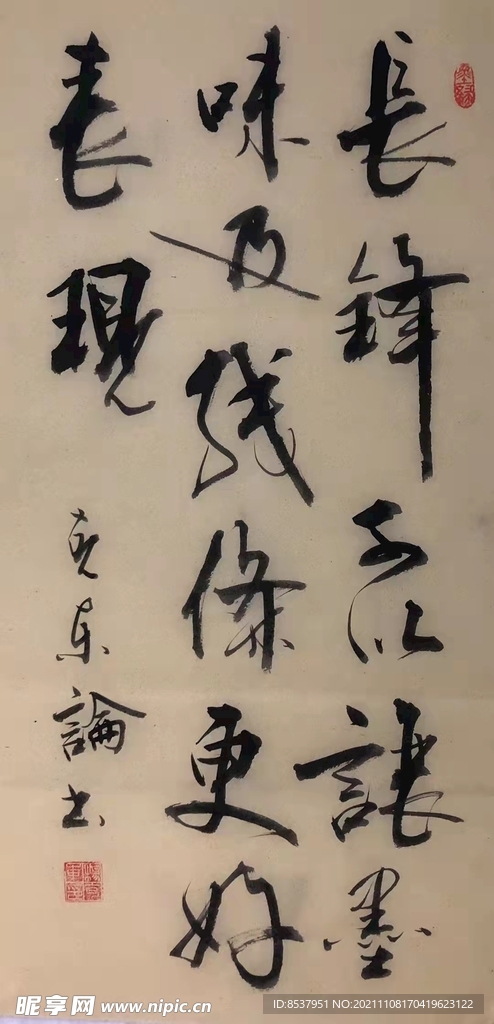 長鋒可以讓墨
味及线條更好
表現
克東論书
昵享网 www.nipic.cn
ID:8537951 NO:20211108170419623122